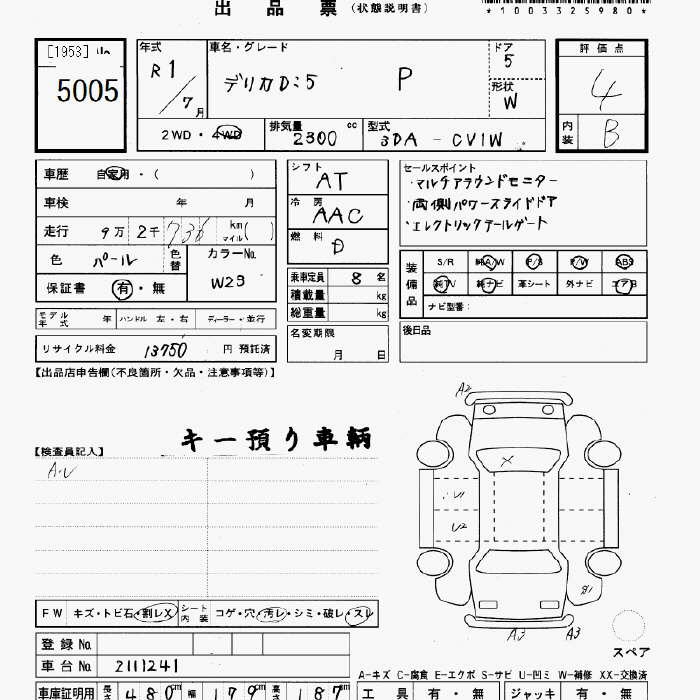 出品票(状態説明書)
*1003325980*
[1953]
5005
年式
R1/7月
車名・グレード
デリカD:5 P
ドア
5
形状
W
評価点
4
内装
B
2WD・4WD
排気量 2300 cc
型式 3DA-CV1W
車歴 自家用・( )
車検 年 月
走行 9万 2千 736 km(マイル)
色 パール
色替
カラーNo. W23
保証書 有・無
シフト
AT
冷房
AAC
燃料
D
乗車定員 8名
積載量 kg
総重量 kg
名変期限
月 日
セールスポイント
・マルチアラウンドモニター
・両側パワースライドドア
・エレクトリックテールゲート
装備品
S/R 純A/W P/S P/W ABS
純TV 純ナビ 革シート 外ナビ エアB
ナビ型番:
後日品
モデル年式 年 ハンドル 左・右 ディーラー・並行
リサイクル料金 13750 円 預託済
【出品店申告欄(不良箇所・欠品・注意事項等)】
キー預り車輌
【検査員記入】
A・U
A2
X
U1
U2
B1
A3
A3
スペア
FW キズ・トビ石・割レX シート内装 コゲ・穴・汚レ・シミ・破レ・スレ
登録No.
車台No. 2111241
A-キズ C-腐食 E-エクボ S-サビ U-凹ミ W-補修 XX-交換済
車庫証明用 長さ 480cm 幅 179cm 高さ 187cm
工具 有・無 ジャッキ 有・無